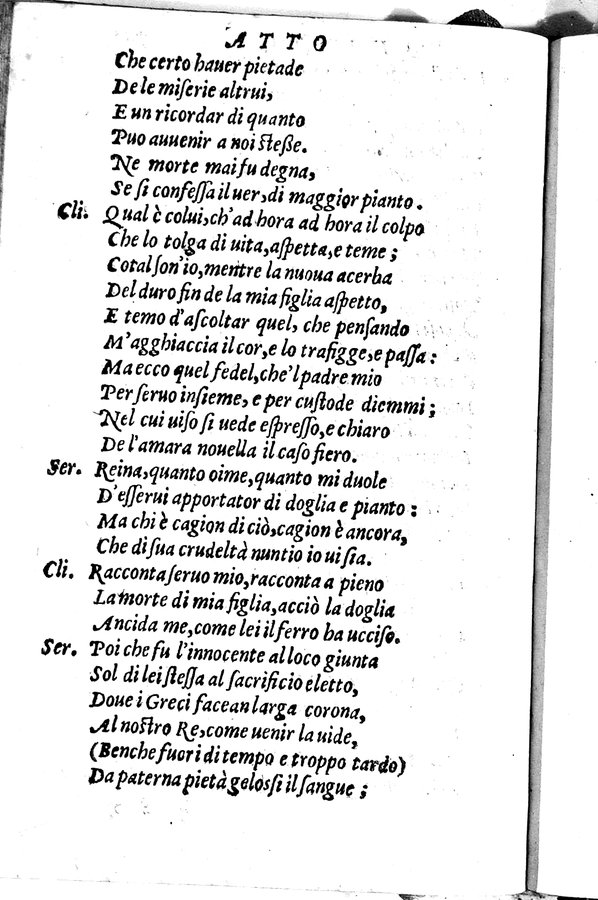 ATTO
Che certo hauer pietade
De le miſerie altrui,
E un ricordar di quanto
Puo auuenir a noi ſteße.
Ne morte mai fu degna,
Se ſi confeſſa il uer, di maggior pianto.
Cli. Qual è colui, ch'ad hora ad hora il colpo
Che lo tolga di uita, aſpetta, e teme;
Cotal ſon'io, mentre la nuoua acerba
Del duro fin de la mia figlia aſpetto,
E temo d'aſcoltar quel, che penſando
M'agghiaccia il cor, e lo trafigge, e paſſa:
Ma ecco quel fedel, che'l padre mio
Per ſeruo inſieme, e per cuſtode diemmi;
Nel cui uiſo ſi uede eſpreſſo, e chiaro
De l'amara nouella il caſo fiero.
Ser. Reina, quanto oime, quanto mi duole
D'eſſerui apportator di doglia e pianto:
Ma chi è cagion di ciò, cagion è ancora,
Che di ſua crudeltà nuntio io ui ſia.
Cli. Racconta ſeruo mio, racconta a pieno
La morte di mia figlia, acciò la doglia
Ancida me, come lei il ferro ha ucciſo.
Ser. Poi che fu l'innocente al loco giunta
Sol di lei ſteſſa al ſacrificio eletto,
Doue i Greci facean larga corona,
Al noſtro Re, come uenir la uide,
(Benche fuori di tempo e troppo tardo)
Da paterna pietà geloſſi il ſangue;